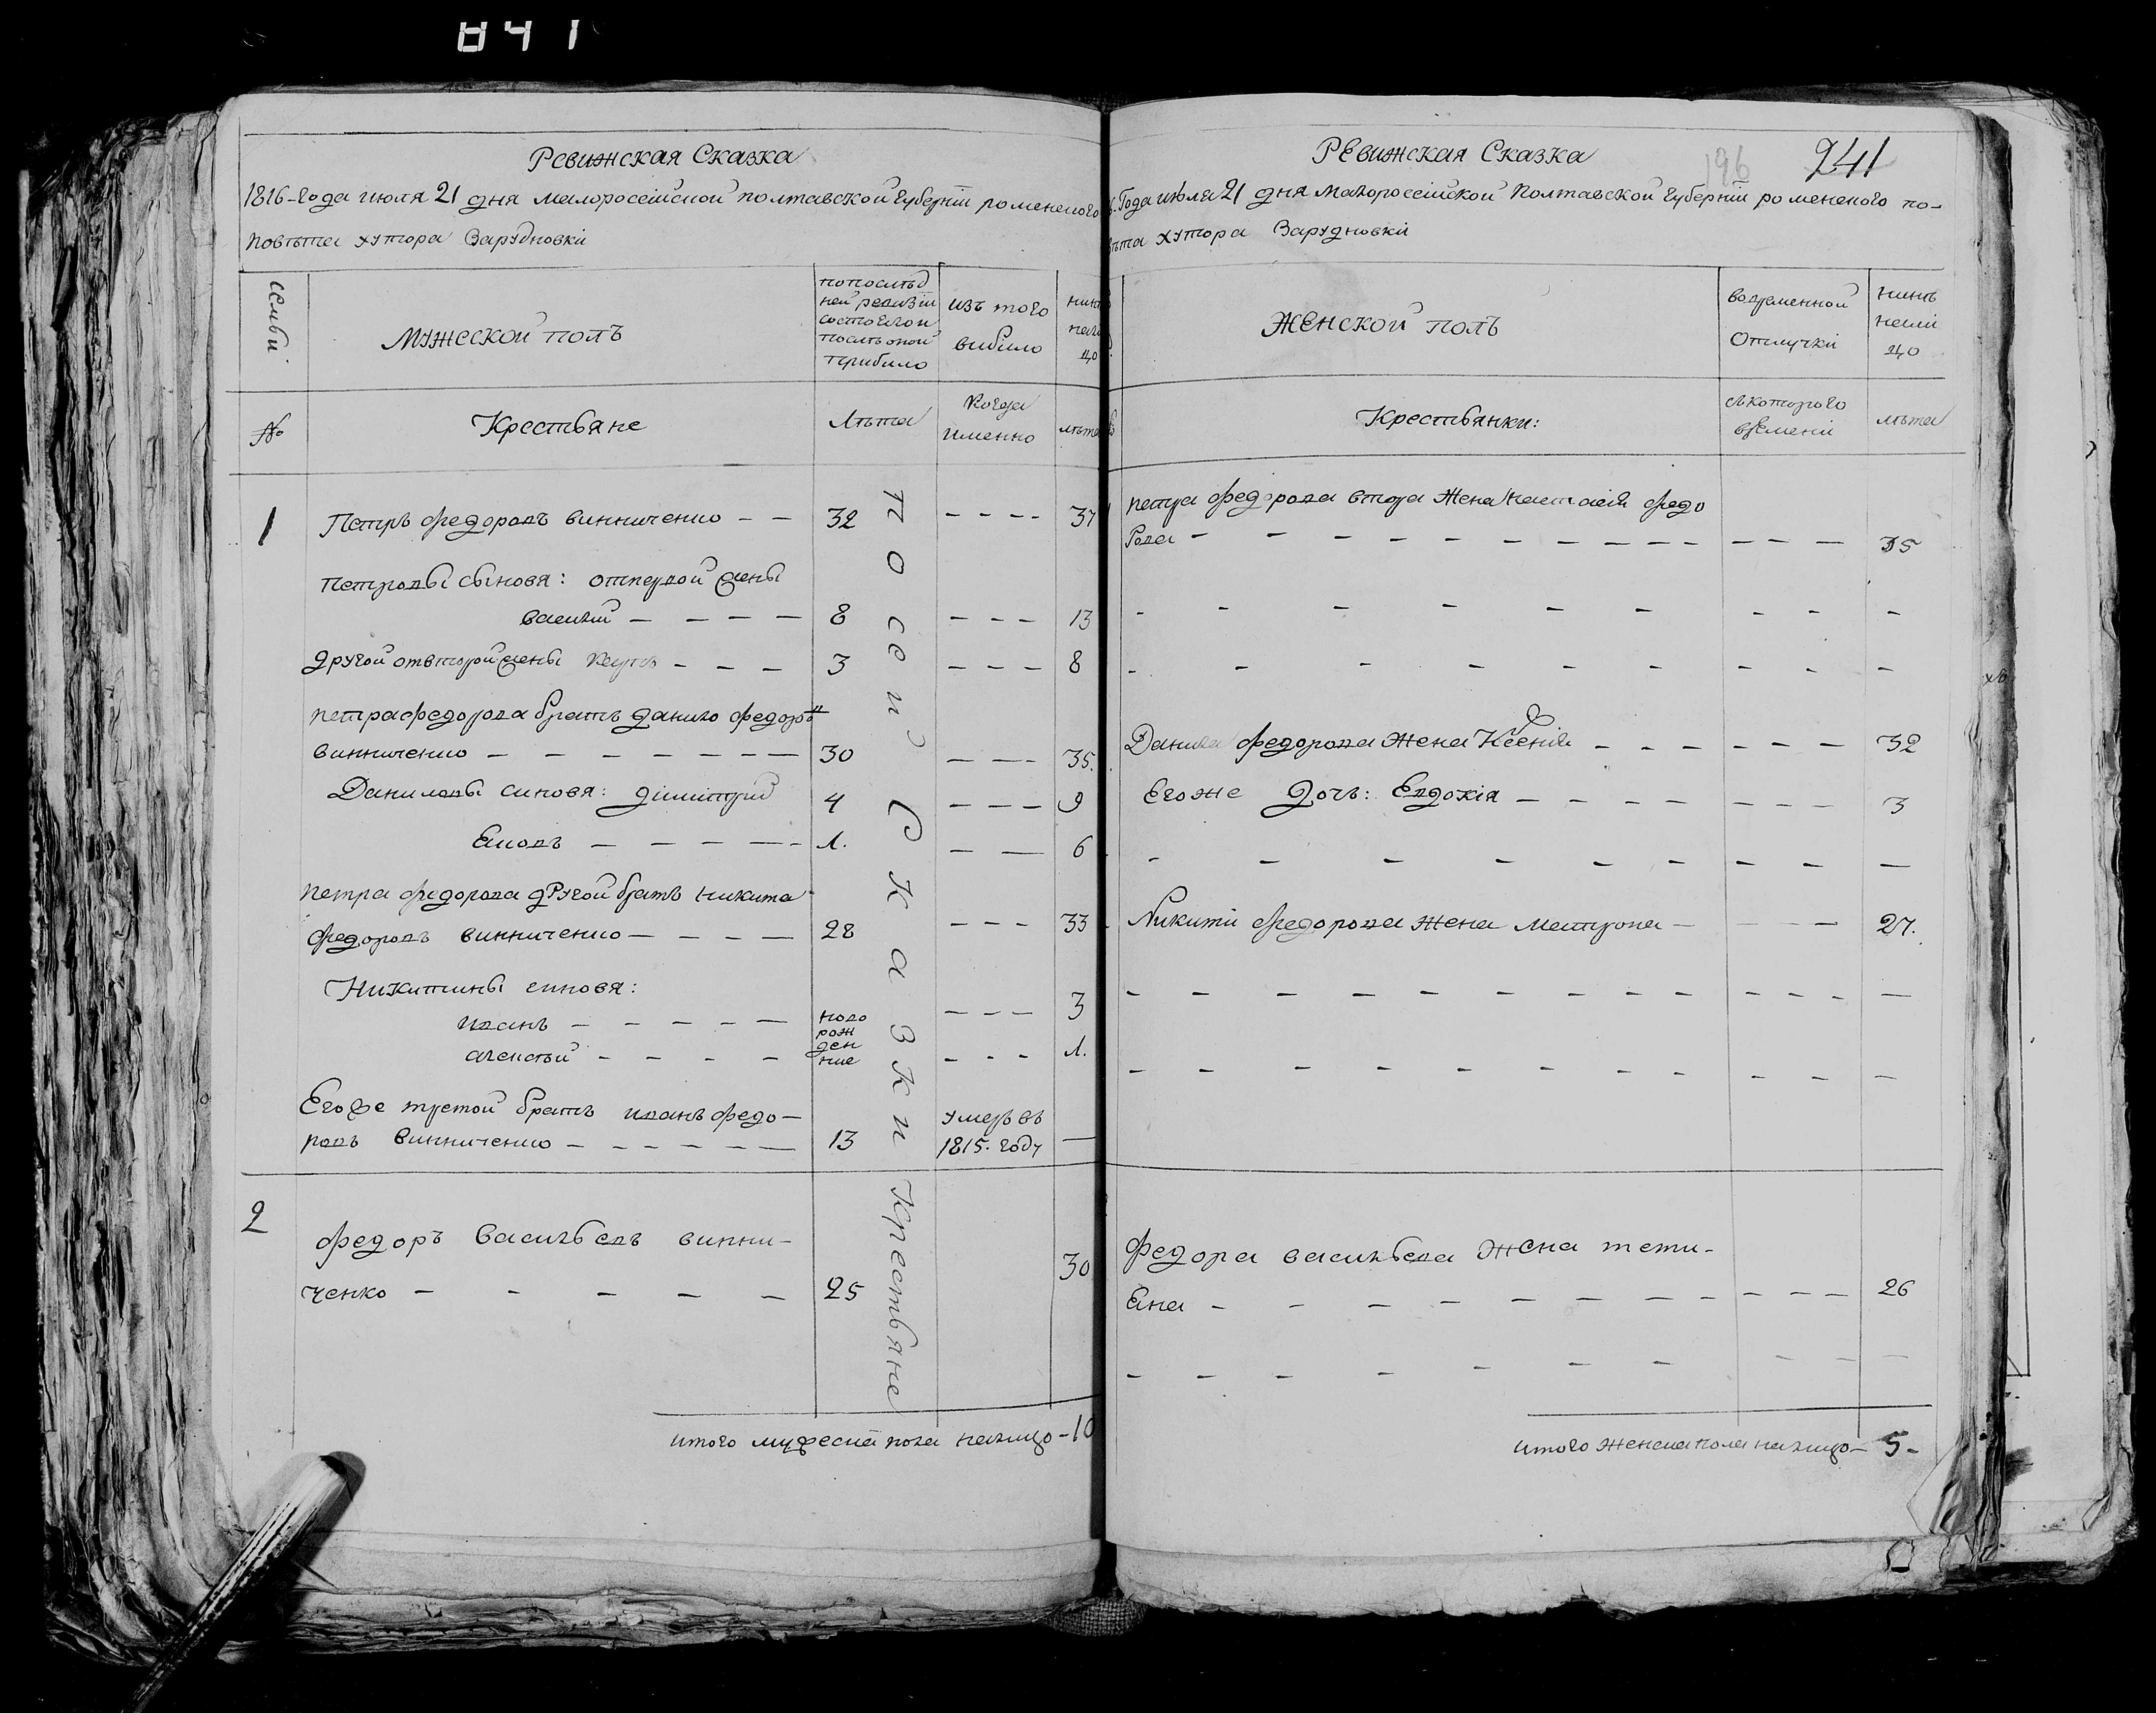 841
Ревижская Сказка
1816-года июля 21 дня малоросеийской полтавской Губернїи роменского
повѣта хутора Зарудновки
Семьи
Мужеской полъ
попослѣд
ней ревизїи
состоялои
послѣ оной
прибило
изъ того
вибило
№
Крестьяне
Лѣта
Когда
именно
лѣта
1
Петръ федоровъ винниченко - - 32 - - - - 37
Петровы сыновя: отпервой жены
василий - - - - 8 - - - 13
другой отвторой жены - - - 3 - - - 8
петра федорова братъ данило федоровъ
винниченко - - - - - - - 30 - - - 35.
Даниловы синовя: димитрий 4 - - - 9
- - - - - 1. - - 6
петра федорова другой братъ никита
федоровъ винниченко - - - - 28 - - - 33
Никитины синовя:
иванъ - - - - - ново - - - 3
рож
ден
ние
алексей - - - - - - - 1.
Егоже третой братъ иванъ федо-
ровъ винниченко - - - - - - 13 умеръ въ
1815. году -
2
федоръ васильевъ винни-
ченко - - - - - 25 30
по сей Сказки Крестьяне
итого мужеска пола налицо - 10
Ревижская Сказка
196
241
Года июля 21 дня малоросеийской Полтавской Губернїи роменского по-
вѣта хутора Зарудновки
Женской полъ
вовременной
Отлучки
нинѣ
нали
цо
Крестьянки:
съкоторого
времени
лѣта
петра федорова втора жена настасия федо
рова - - - - - - - - - - - - - 35
Данила федорова жена Ксения - - - - - - 32
Егоже дочь: Евдокия - - - - - - - 3
Никити федорова жена матрона - - - - 27.
федора васильева жена тети-
яна - - - - - - - - - - - - 26
итого женска пола налицо - 5 -